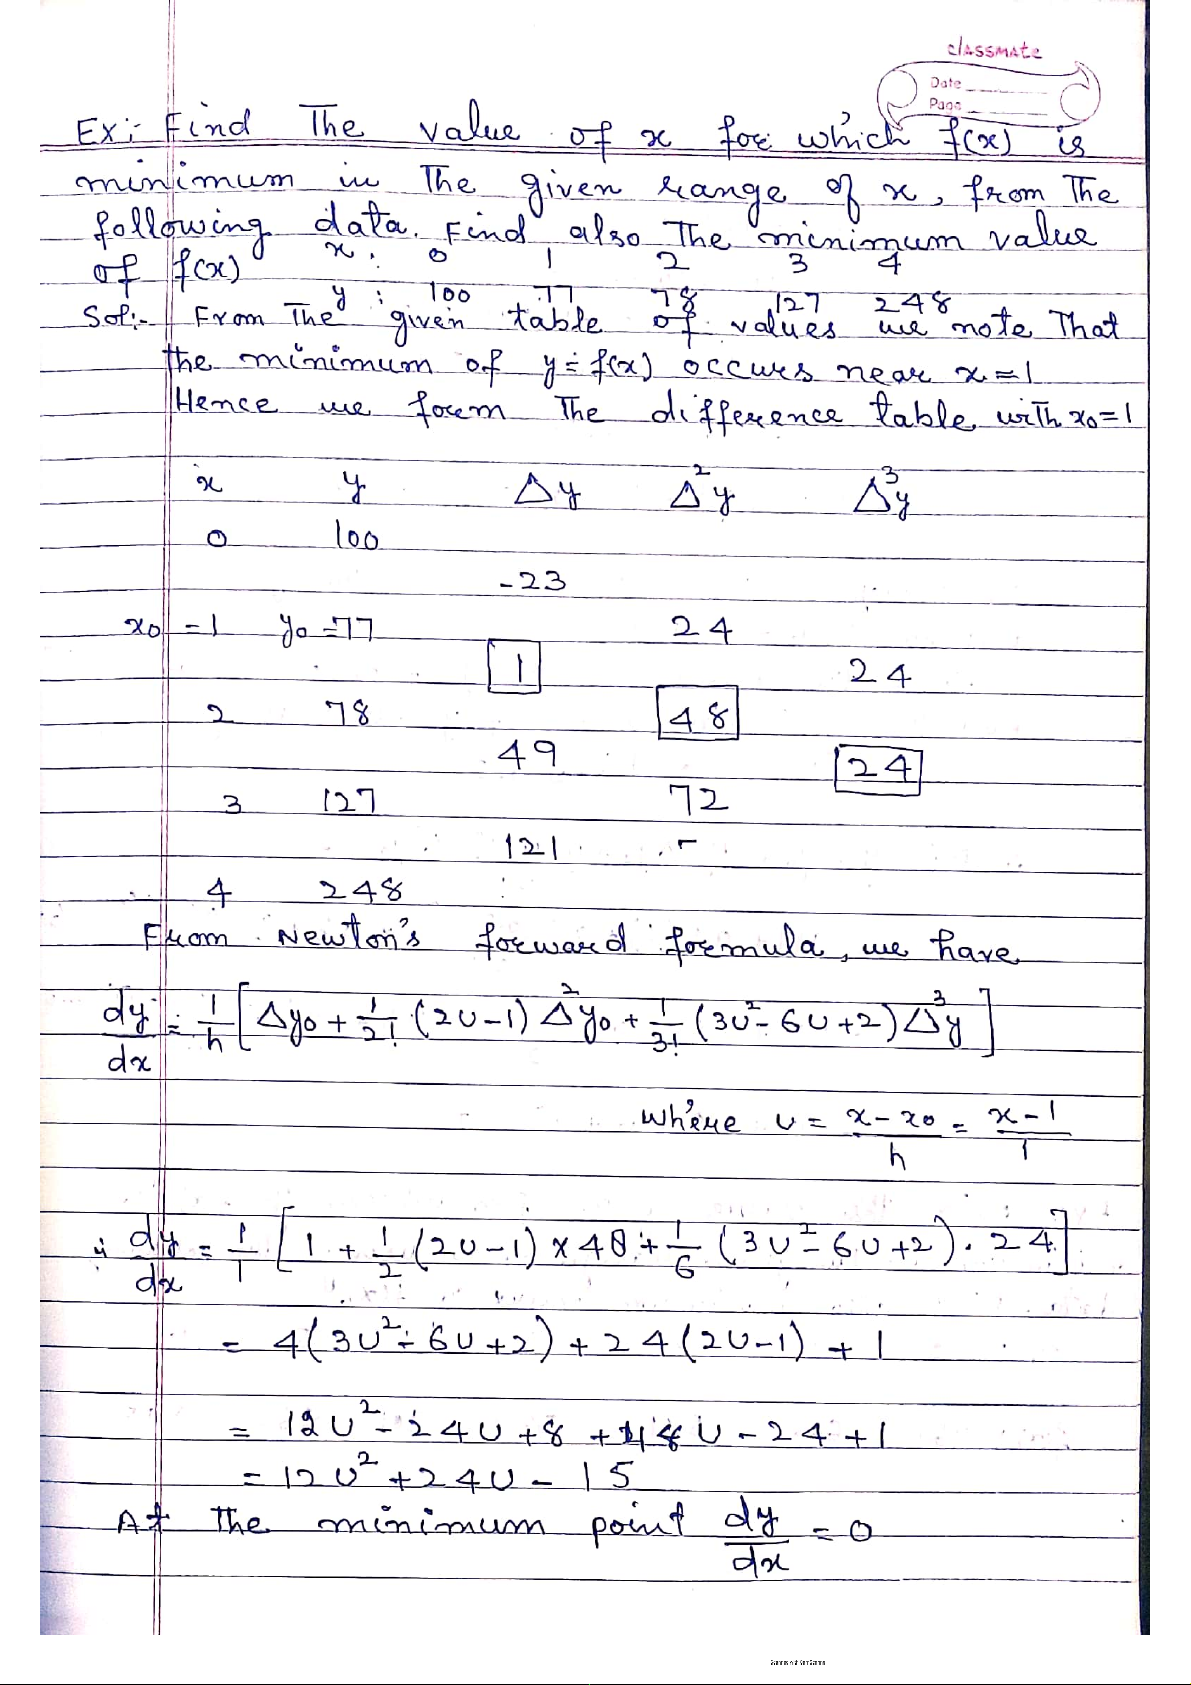 classmate
Date
Page
Ex:- Find The value of x for which f(x) is
minimum in The given range of x, from The
following data. Find also The minimum value
of f(x)
x : 0 1 2 3 4
y : 100 77 78 127 248
Sol:- From The given table of values we note That
the minimum of y = f(x) occurs near x = 1
Hence we form The difference table with x0 = 1
x y Δy Δ²y Δ³y
0 100
-23
x0 = 1 y0 = 77 24
1 24
2 78 48
49 24
3 127 72
121
4 248
From Newton's forward formula, we have
dy/dx = 1/h [Δy0 + 1/2! (2u-1) Δ²y0 + 1/3! (3u²-6u+2) Δ³y]
where u = x-x0/h = x-1/1
∴ dy/dx = 1/1 [1 + 1/2 (2u-1) × 48 + 1/6 (3u²-6u+2) . 24]
= 4(3u²-6u+2) + 24(2u-1) + 1
= 12u² - 24u + 8 + 48u - 24 + 1
= 12u² + 24u - 15
At The minimum point dy/dx = 0